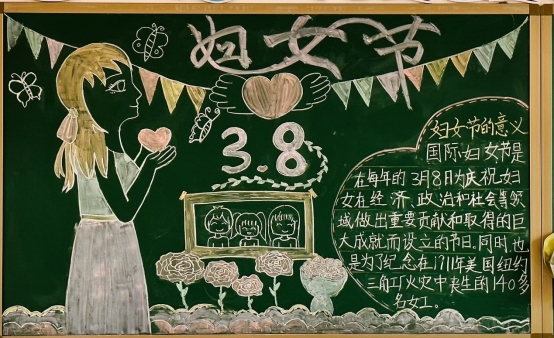 妇女节
3.8
妇女节的意义
国际妇女节是
在每年的3月8日为庆祝妇
女在经济、政治和社会等领
域做出重要贡献和取得的巨
大成就而设立的节日。同时也
是为了纪念在1911年美国纽约
三角工厂火灾中丧生的140多
名女工。